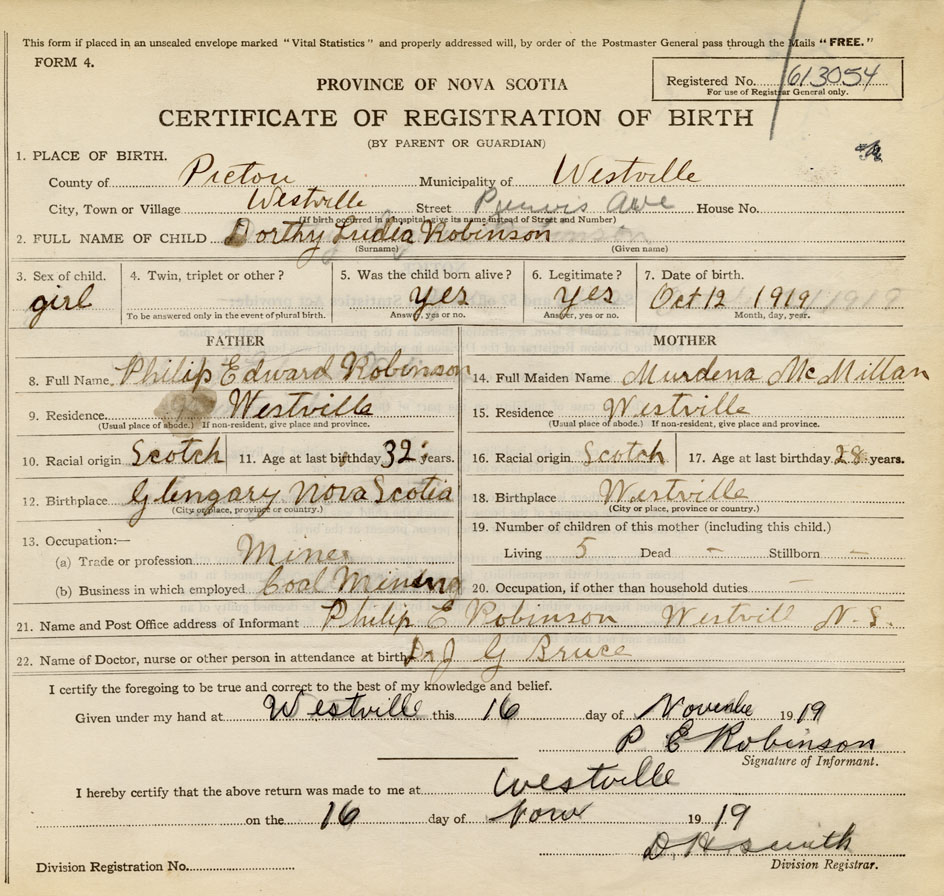 This form if placed in an unsealed envelope marked "Vital Statistics" and properly addressed will, by order of the Postmaster General pass through the Mails "FREE."
FORM 4.
Registered No. 613054
For use of Registrar General only.
PROVINCE OF NOVA SCOTIA
CERTIFICATE OF REGISTRATION OF BIRTH
(BY PARENT OR GUARDIAN)
1. PLACE OF BIRTH.
County of Pictou Municipality of Westville
City, Town or Village Westville Street Ave House No.
(If birth occurred in a hospital, give its name instead of Street and Number)
2. FULL NAME OF CHILD Dorthy Ludia Robinson
(Surname) (Given name)
3. Sex of child. 4. Twin, triplet or other? 5. Was the child born alive? 6. Legitimate? 7. Date of birth.
girl yes yes Oct 12 1919
To be answered only in the event of plural birth. Answer yes or no. Answer, yes or no. Month, day, year.
FATHER
8. Full Name Philip Edward Robinson
9. Residence Westville
(Usual place of abode.) If non-resident, give place and province.
10. Racial origin Scotch 11. Age at last birthday 32 years.
12. Birthplace Glengary Nova Scotia
(City or place, province or country.)
13. Occupation:—
(a) Trade or profession Miner
(b) Business in which employed Coal Mining
MOTHER
14. Full Maiden Name Murdena McMillan
15. Residence Westville
(Usual place of abode.) If non-resident, give place and province.
16. Racial origin Scotch 17. Age at last birthday 28 years.
18. Birthplace Westville
(City or place, province or country.)
19. Number of children of this mother (including this child.)
Living 5 Dead – Stillborn –
20. Occupation, if other than household duties –
21. Name and Post Office address of Informant Philip E Robinson Westvill N.S.
22. Name of Doctor, nurse or other person in attendance at birth Dr J G Bruce
I certify the foregoing to be true and correct to the best of my knowledge and belief.
Given under my hand at Westville this 16 day of Novembe 1919
P E Robinson
Signature of Informant.
I hereby certify that the above return was made to me at Westville
on the 16 day of Nov 1919
D H Smith
Division Registrar.
Division Registration No.